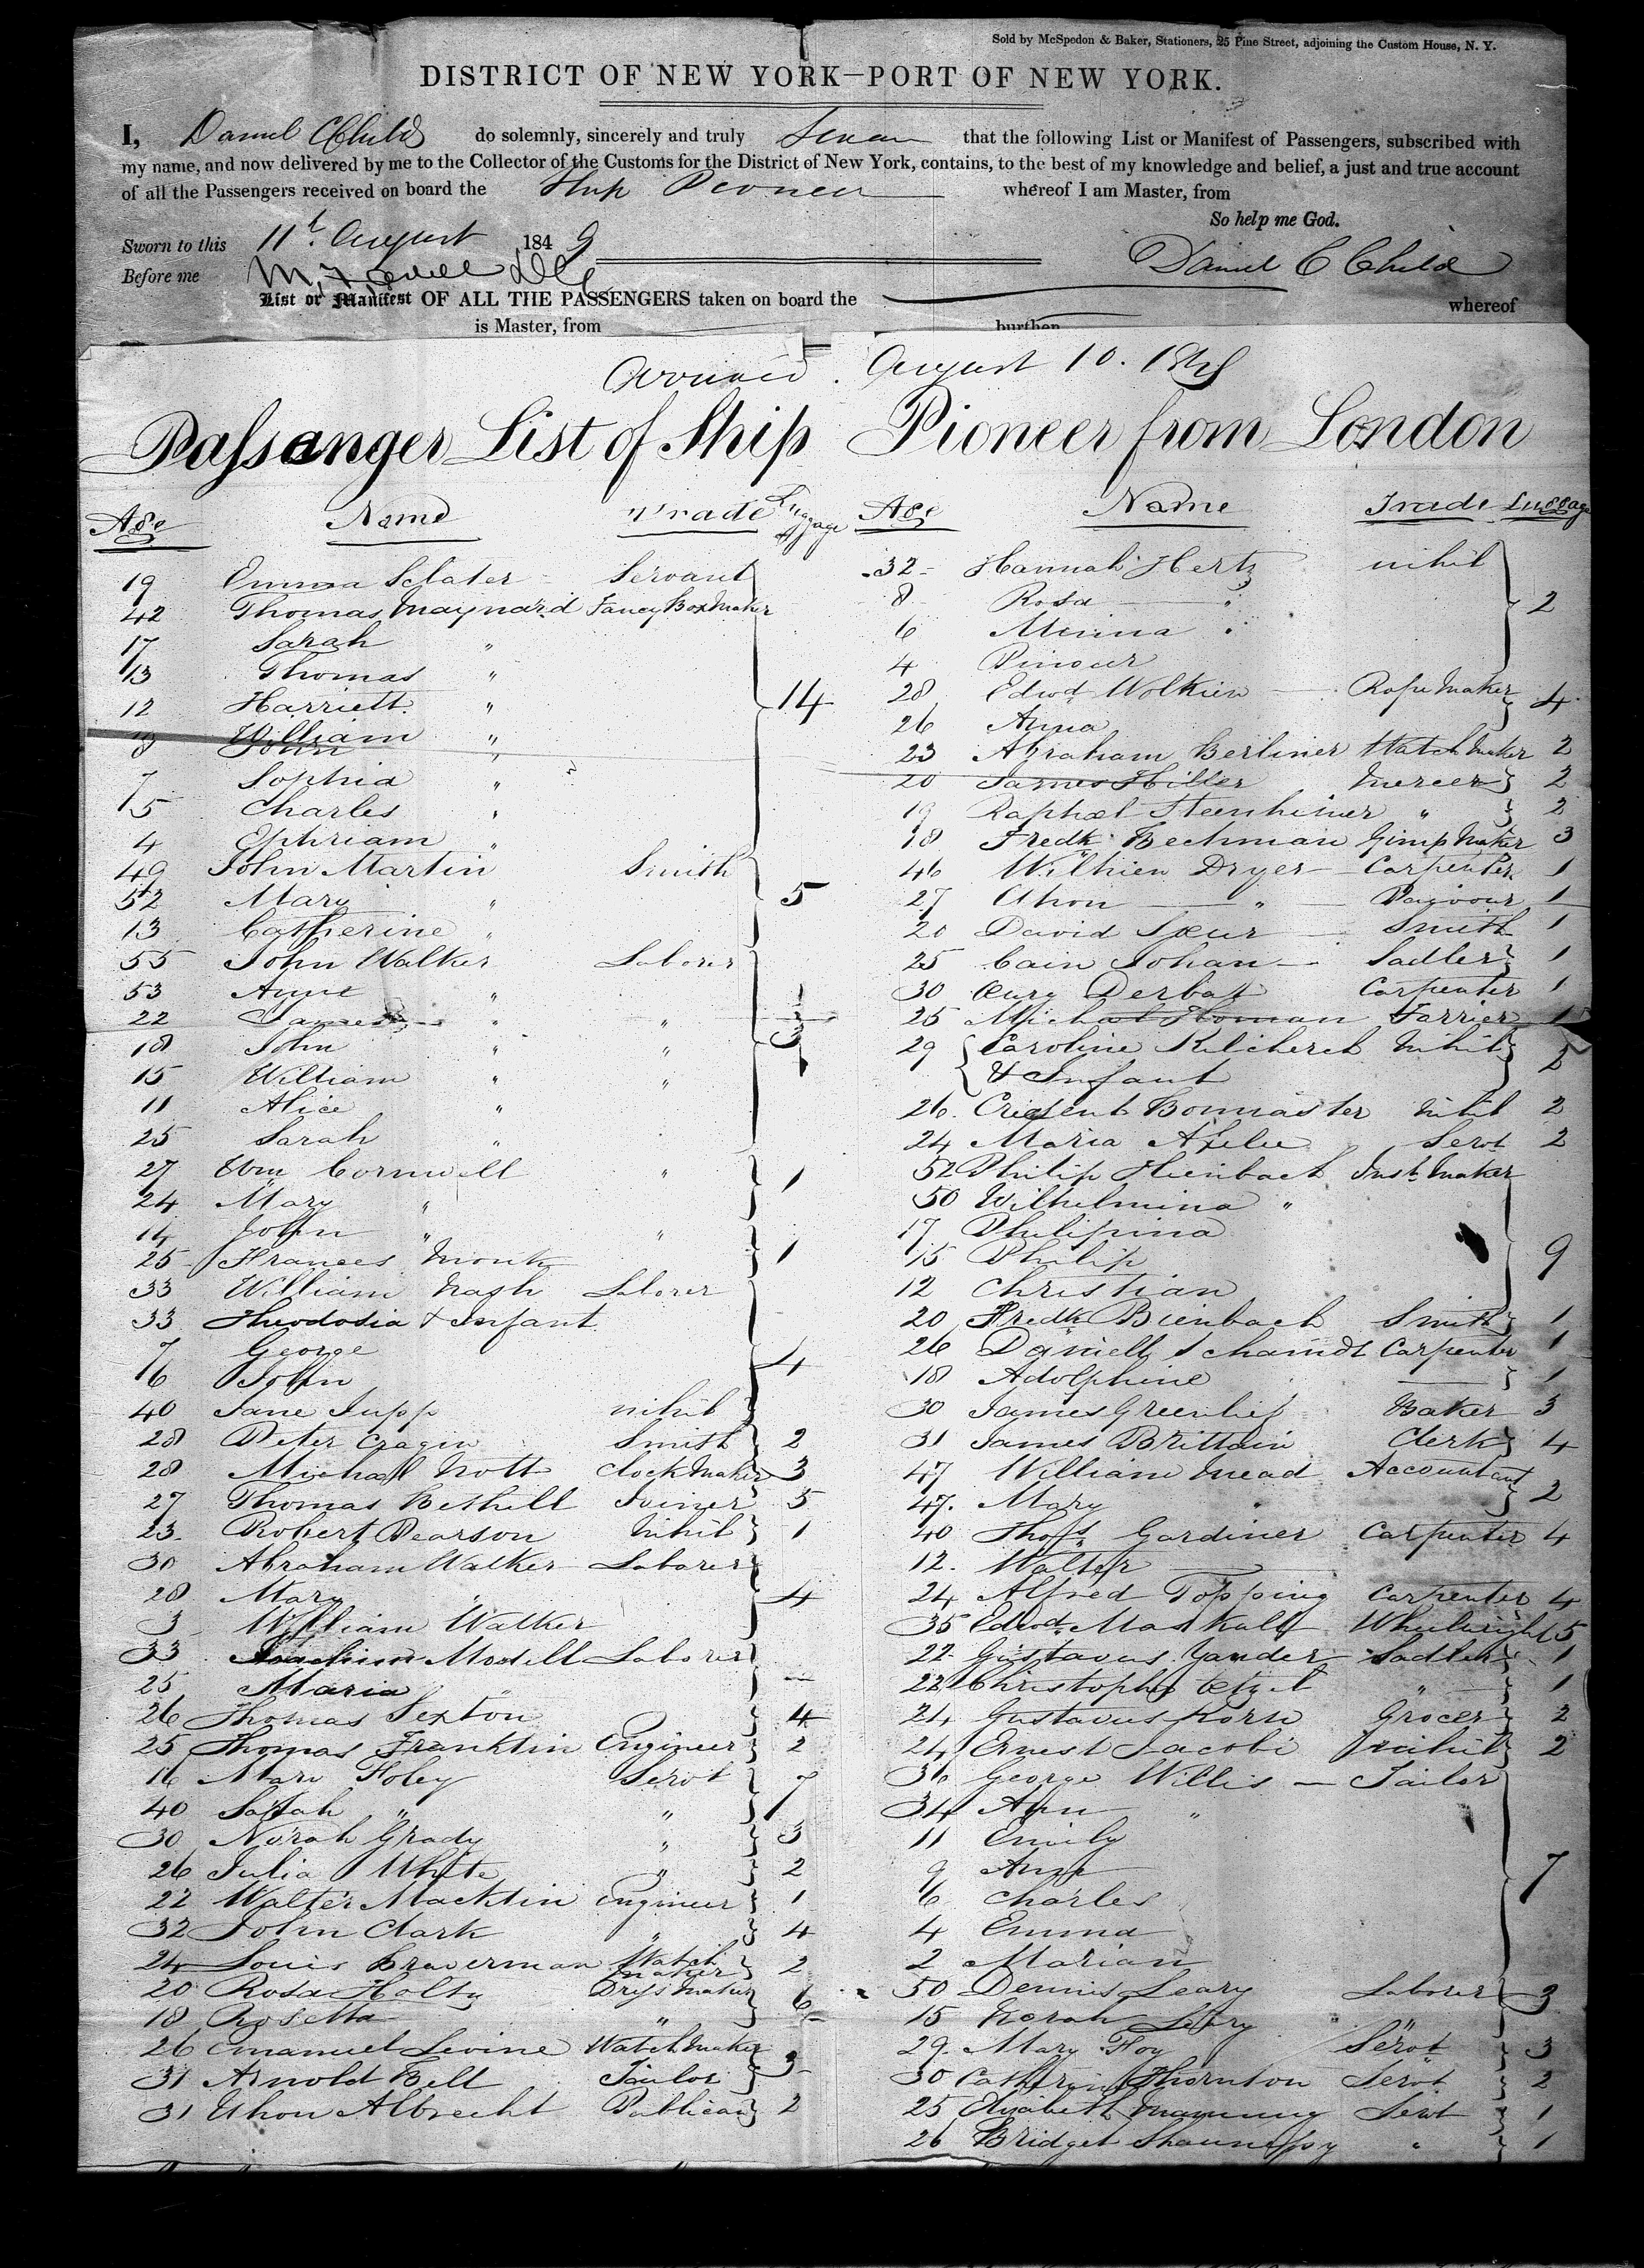 Sold by McSpedon & Baker, Stationers, 25 Pine Street, adjoining the Custom House, N. Y.
DISTRICT OF NEW YORK—PORT OF NEW YORK.
I, Daniel C Child do solemnly, sincerely and truly Swear that the following List or Manifest of Passengers, subscribed with
my name, and now delivered by me to the Collector of the Customs for the District of New York, contains, to the best of my knowledge and belief, a just and true account
of all the Passengers received on board the Ship Pioneer whereof I am Master, from
So help me God.
Sworn to this 11th August 1849
Before me
Daniel C Child
List or Manifest OF ALL THE PASSENGERS taken on board the whereof
is Master, from burthen
Arrived August 10. 1849
Passanger List of Ship Pioneer from London
Age Name Trade Luggage
19 Emma Sclater Servant
42 Thomas Maynard Fancy Box Maker
17 Sarah "
13 Thomas "
12 Harriett "
William "
8 John "
7 Sophia "
5 Charles "
4 Ephriam "
14
49 John Martin Smith
52 Mary " 5
13 Catherine "
55 John Walker Laborer
53 Anne "
22 James " "
18 John " "
15 William " "
11 Alice "
25 Sarah "
27 Wm Cornwell " 1
24 Mary "
14 John " "
25 Frances Monk 1
33 William Nash Laborer
33 Theodosia & Infant
7 George 4
6 John
40 Jane Jupp nihil
28 Peter Cragin Smith 2
28 Michael Nott Clock Maker 3
27 Thomas Bethell Joiner 5
23 Robert Pearson Nihil 1
30 Abraham Walker Laborer
28 Mary " 4
3 William Walker
33 Mosell Laborer
25 Maria "
26 Thomas Sexton 4
25 Thomas Franklin Engineer 2
16 Mary Foley Servt 7
40 Sarah " "
30 Norah Grady " 3
26 Julia White " 2
22 Walter Macklin Engineer 1
32 John Clark " 4
24 Louis Braverman Watch Maker 2
20 Rosa Holty Dress Maker 6
18 Rosetta "
26 Emanuel Levine Watch Maker 3
31 Arnold Bell Tailor
31 Uhon Albrecht Publican 2
Age Name Trade Luggage
32 Hannah Hertz nihil
8 Rosa " 2
6 Minna "
4 Pinour
28 Edwd Wolkien Rope Maker 4
26 Anna
23 Abraham Berliner Watch Maker 2
20 James Hiller Mercer 2
19 Raphael Steenheimer " 2
18 Fredk Bechman Gimp Maker 3
46 Wilhien Dryer Carpenter 1
27 Uhon " 1
20 David Smith 1
25 Cain Johan Sadler 1
30 Derbat Carpenter 1
25 Michal Homan Farrier 1
29 Caroline Kilcherch Nihil 2
& Infant
26 Bonmaster Nihil 2
24 Maria Servt 2
52 Philip Hienbach Inst. Maker
50 Wilhelmina "
17 Philipina
15 Philip 9
12 Christian
20 Fredk Bienbach Smith 1
26 Daniell Schamdt Carpenter 1
18 Adolphine 1
30 James Greenlief Baker 3
31 James Brittain Clerk 4
47 William Mead Accountant
47 Mary 2
40 Thoss Gardiner Carpenter 4
12 Walter
24 Alfred Topping Carpenter 4
35 Edwd Maskall Wheelwright 5
22 Gustavus Yander Sadler 1
22 Christopher Oetzel " 1
24 Gustavus Korn Grocer 2
24 Ernest Jacobi nihil 2
36 George Willis Tailor
34 Ann "
11 Emily
9 Anne
6 Charles 7
4 Emma
2 Marian
50 Dennis Leary Laborer 3
15 Norah Leary "
29 Mary Foy Servt 3
30 Catherine Thornton Servt 2
25 Elizabeth Manning Servt 1
26 Bridget Shaunessy " 1